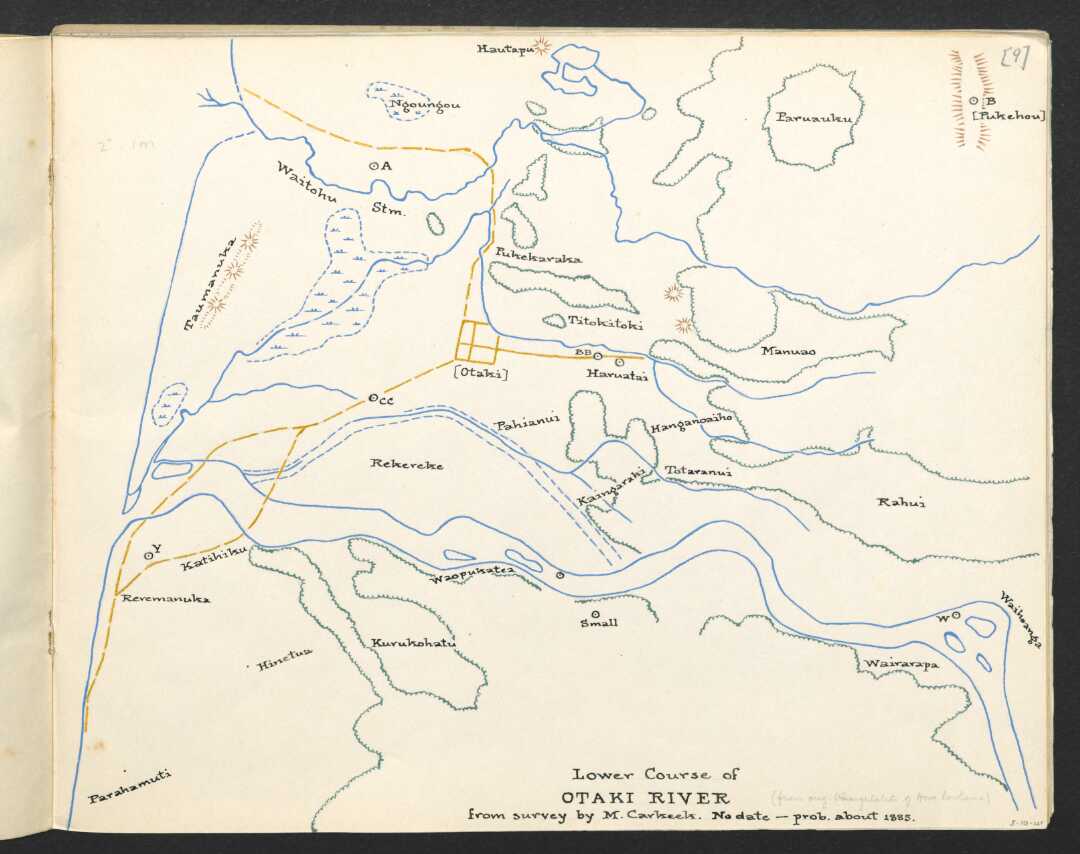 Hautapu
[9]
Ngoungou
Paruauku
B
[Pukehou]
2" . 1m
A
Waitohu
Stm.
Taumanuka
Pukekaraka
Titokitoki
Manuao
BB
[Otaki]
Haruatai
CC
Pahianui
Hanganoaiho
Rekereke
Kaingaraki
Totaranui
Rahui
Y
Katihiku
Waopukatea
Reremanuka
Small
W
Waihoanga
Hinetua
Kurukohatu
Wairarapa
Parahamuti
Lower Course of
OTAKI RIVER
from survey by M. Carkeek. No date — prob. about 1885.